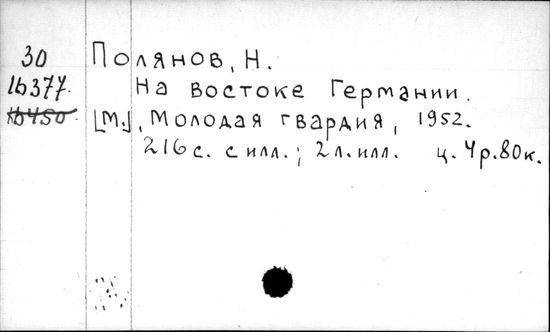 30
16377.
16450.
Полянов, Н.
На востоке Германии.
[М.], Молодая гвардия, 1952.
216 с. с илл.; 2 л. илл. ц. 4 р. 80 к.